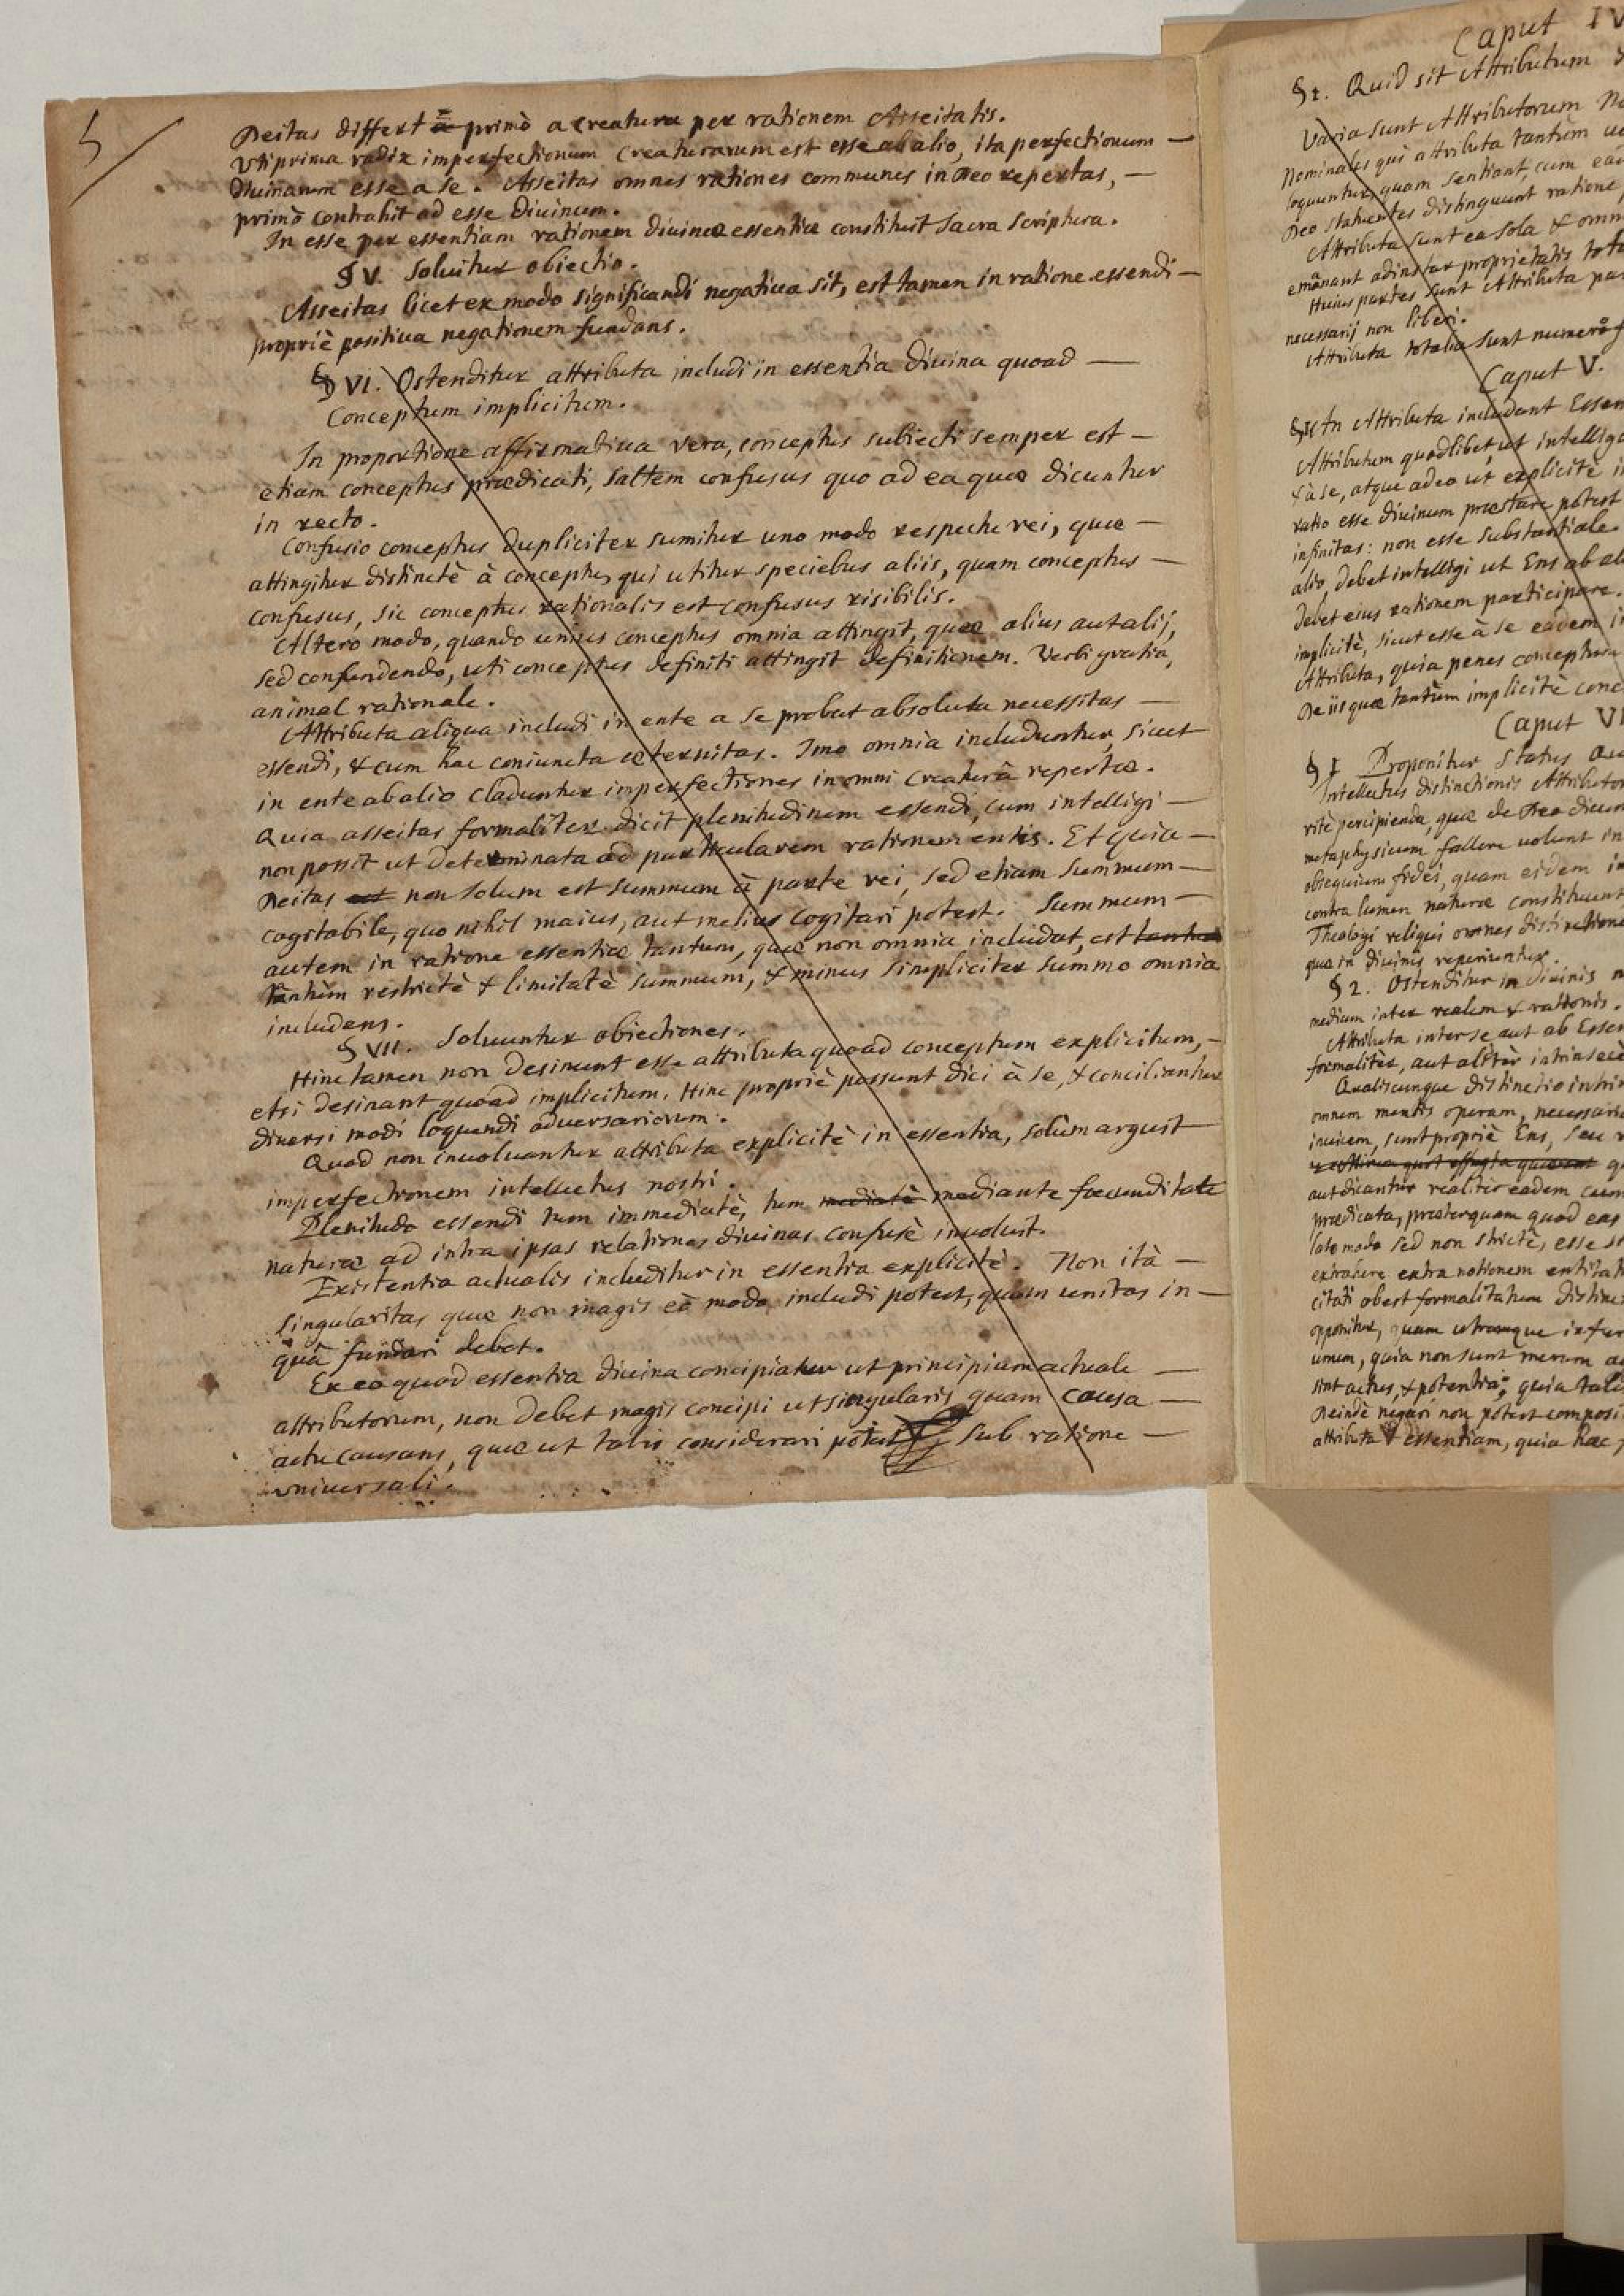 5
Deitas differt à primò a creatura per rationem Asseitatis.
Vti prima radix imperfectionum Creaturarum est esse ab alio, ita perfectionum —
Diuinarum esse a se. Asseitas omnes rationes communes in Deo repertas, —
primò contrahit ad esse Diuinum.
In esse per essentiam rationem diuinæ essentiæ constituit Sacra Scriptura.
§ V. Soluitur obiectio.
Asseitas licet ex modo significandi negatiua sit, est tamen in ratione essendi —
propriè positiua negationem fundans.
§ VI. Ostenditur attributa includi in essentia diuina quoad —
Conceptum implicitum.
In proportione affirmatiua vera, conceptus subiecti semper est —
etiam conceptus prædicati, saltem confusus quo ad ea quæ dicuntur
in recto.
Confusio conceptus dupliciter sumitur uno modo respectu rei, quæ —
attingitur distinctè à conceptu, qui utitur speciebus aliis, quam conceptus —
confusus, sic conceptus rationalis est confusus risibilis.
Altero modo, quando unius conceptus omnia attingit, quæ alius aut alij,
sed confundendo, uti conceptus definiti attingit definitionem. Verbi gratia,
animal rationale.
Attributa aliqua includi in ente a se probat absoluta necessitas —
essendi, & cum hac coniuncta æternitas. Imo omnia includuntur, sicut
in ente ab alio claduntur imperfectiones in omni creaturâ repertæ.
Quia asseitas formaliter dicit plenitudinem essendi, cum intelligi —
non possit ut determinata ad particularem rationem entis. Et quia —
Deitas est non solum est summum à parte rei, sed etiam summum —
cogitabile, quo nihil maius, aut melius cogitari potest. Summum —
autem in ratione essentiæ tantum, quæ non omnia includat, est tantum
tantùm restrictè & limitatè summum, & minus simpliciter summo omnia
includens.
§ VII. Soluuntur obiectiones.
Hinc tamen non desinunt esse attributa quoad conceptum explicitum, —
etsi desinant quoad implicitum. Hinc propriè possunt dici à se, & conciliantur
diuersi modi loquendi aduersariorum.
Quod non inuoluantur attributa explicitè in essentia, solum arguit
imperfectionem intellectus nostri.
Plenitudo essendi tum immediatè, tum mediatè mediante fœcunditate
naturæ ad intra ipsas relationes diuinas confusè inuoluit.
Existentia actualis includitur in essentia explicitè. Non ità —
singularitas quæ non magis eò modo includi potest, quàm unitas in —
quâ fundari debet.
Ex eo quod essentia diuina concipiatur ut principium actuale —
attributorum, non debet magis concipi ut singularis quam causa —
actu causans, quæ ut talis considerari potest sub ratione —
vniuersali.
Caput IV
§ 1. Quid sit Attributum
Varia sunt Attributorum
Nominales qui attributa tantùm
loquuntur, quam sentiant, cum
Deo statuentes distinguunt ratione
Attributa sunt ea sola & omn
emanant ad instar proprietatis
Huius partes sunt Attributa
necessarij non liberi.
Attributa totalia sunt numero
Caput V.
§ 1 An Attributa includant Essen
Attributum quodlibet, ut intelliga
à se, atque adeo ut explicitè
ratio esse diuinum præstare potest
infinitas: non esse substantiale
alio, debet intelligi ut Ens ab
debet eius rationem participare.
implicitè, sicut esse à se eadem
Attributa, quia penes conceptum
De iis quæ tantùm implicitè conc
Caput VI
§ 1 Proponitur Status
Intellectus distinctionis Attributo
ritè percipienda, quæ de Deo dicun
metaphysicum fallere uolunt
obsequium fidei, quam eidem
contra lumen naturæ constituunt
Theologi reliqui omnes distinctione
quæ in diuinis reperiuntur.
§ 2. Ostenditur in diuinis
medium inter realem & rationis.
Attributa inter se aut ab Essen
formaliter, aut aliter intrinsecè
Qualiscunque distinctio intrin
omnem mentis operam, necessario
inuicem, sunt propriè Ens, seu
aut dicantur realiter eadem
prædicata, præterquam quod ens
lato modo sed non strictè, esse
extrahere extra notionem entitat
citati obest formalitatum distinc
opponitur, quam utrumque infer
unum, quia non sunt merum
sint actus, & potentia, quia tali
Deinde negari non potest composi
attributa & essentiam, quia hæc